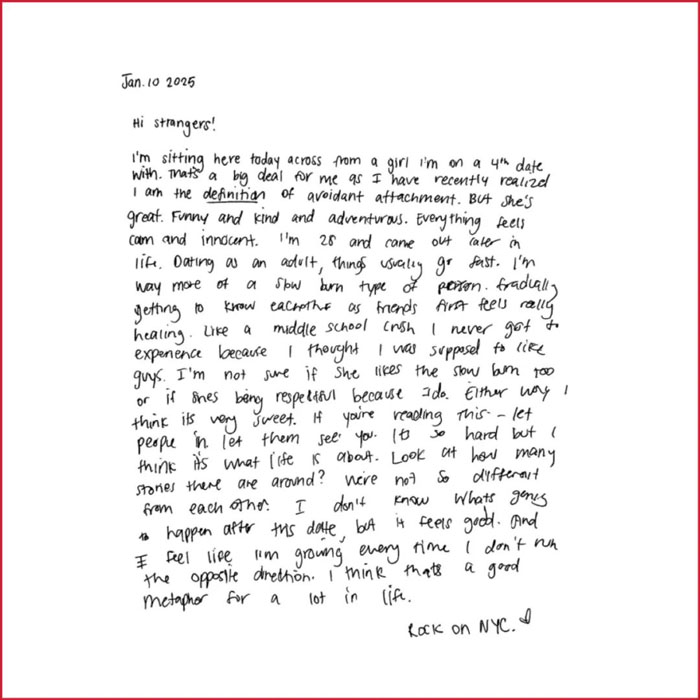 Jan. 10 2025
Hi strangers!
I'm sitting here today across from a girl I'm on a 4th date
with. Thats a big deal for me as I have recently realized
I am the definition of avoidant attachment. But she's
great. Funny and kind and adventurous. Everything feels
cam and innocent. I'm 28 and came out later in
life. Dating as an adult, things usually go fast. I'm
way more of a slow burn type of person. Gradually
getting to know eachother as friends first feels really
healing. Like a middle school crush I never got to
experience because I thought I was supposed to like
guys. I'm not sure if she likes the slow burn too
or if shes being respectful because I do. Either way I
think its very sweet. If you're reading this - let
people in let them see you. Its so hard but I
think it's what life is about. Look at how many
stories there are around? We're not so different
from each other. I don't know whats going
to happen after this date, but it feels good. And
I feel like I'm growing every time I don't run
the opposite direction. I think thats a good
metaphor for a lot in life.
Rock on NYC.